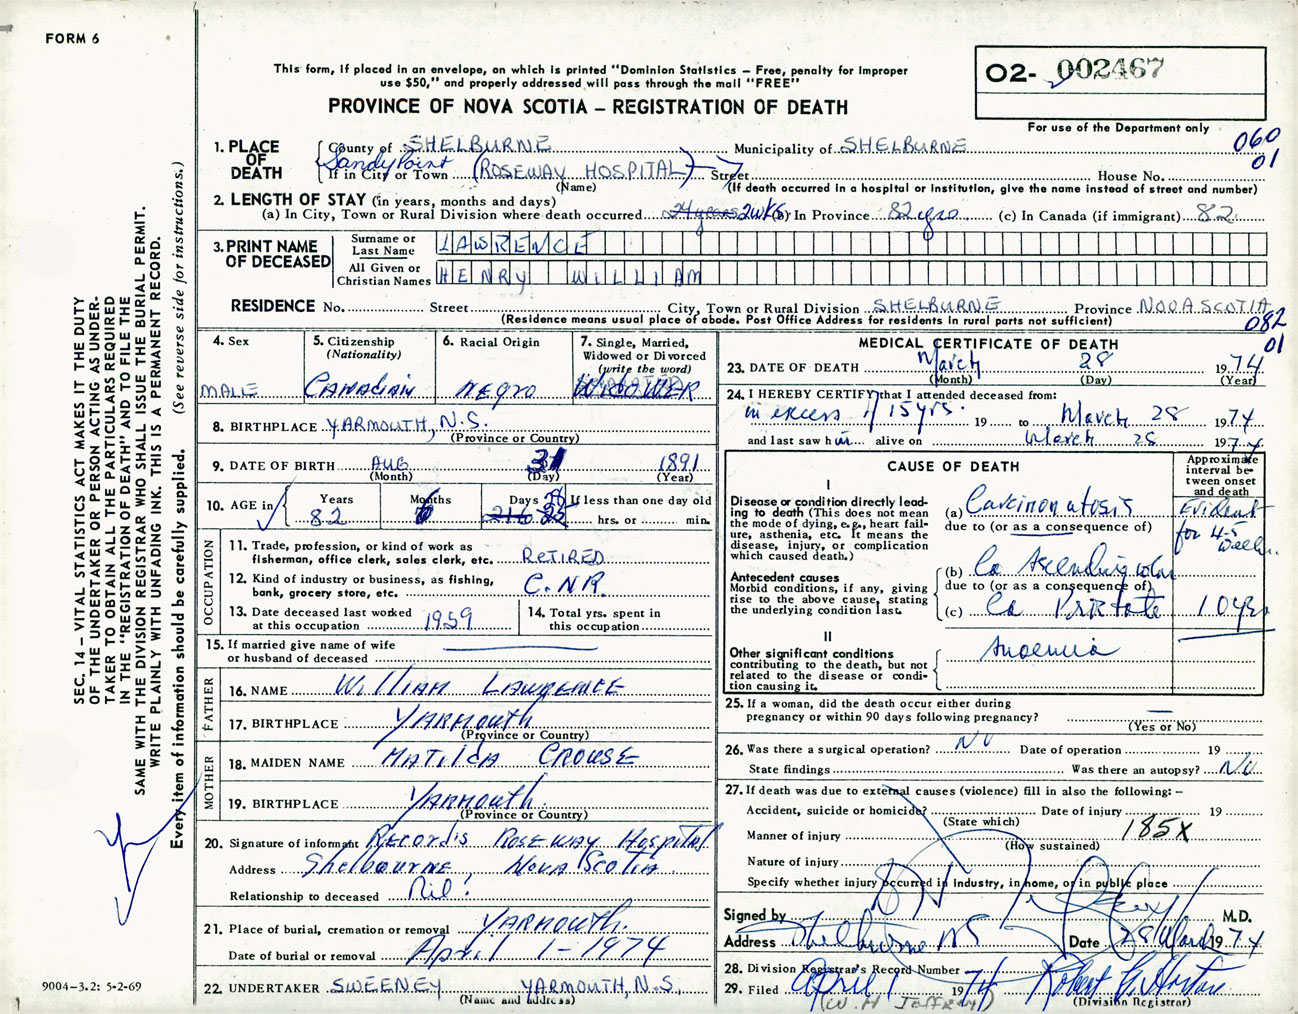 FORM 6
This form, if placed in an envelope, on which is printed "Dominion Statistics – Free, penalty for improper
use $50," and properly addressed will pass through the mail "FREE"
PROVINCE OF NOVA SCOTIA – REGISTRATION OF DEATH
02- 002467
For use of the Department only
060
01
1. PLACE OF DEATH
County of SHELBURNE Municipality of SHELBURNE
Sandy Point
If in City or Town (ROSEWAY HOSPITAL) Street House No.
(Name) (If death occurred in a hospital or institution, give the name instead of street and number)
2. LENGTH OF STAY (in years, months and days)
(a) In City, Town or Rural Division where death occurred 24 years 2wks (b) In Province 82 yrs. (c) In Canada (if immigrant) 82
3. PRINT NAME OF DECEASED
Surname or Last Name LAWRENCE
All Given or Christian Names HENRY WILLIAM
RESIDENCE No. Street City, Town or Rural Division SHELBURNE Province NOVA SCOTIA
(Residence means usual place of abode. Post Office Address for residents in rural parts not sufficient)
082
01
4. Sex MALE
5. Citizenship (Nationality) CANADIAN
6. Racial Origin NEGRO
7. Single, Married, Widowed or Divorced (write the word) WIDOWER
8. BIRTHPLACE YARMOUTH, N.S.
(Province or Country)
9. DATE OF BIRTH AUG 31 1891
(Month) (Day) (Year)
10. AGE in Years Months Days If less than one day old
82 6 28 hrs. or min.
OCCUPATION
11. Trade, profession, or kind of work as
fisherman, office clerk, sales clerk, etc. RETIRED
12. Kind of industry or business, as fishing,
bank, grocery store, etc. C.N.R.
13. Date deceased last worked
at this occupation 1959
14. Total yrs. spent in
this occupation
15. If married give name of wife
or husband of deceased
FATHER
16. NAME WILLIAM LAWRENCE
17. BIRTHPLACE YARMOUTH
(Province or Country)
MOTHER
18. MAIDEN NAME MATILDA CROUSE
19. BIRTHPLACE YARMOUTH.
(Province or Country)
20. Signature of informant Records Roseway Hospital
Address Shelbourne, Nova Scotia.
Relationship to deceased Nil.
21. Place of burial, cremation or removal YARMOUTH.
Date of burial or removal April 1 - 1974
22. UNDERTAKER SWEENEY YARMOUTH, N.S.
(Name and address)
MEDICAL CERTIFICATE OF DEATH
23. DATE OF DEATH March 28 1974
(Month) (Day) (Year)
24. I HEREBY CERTIFY that I attended deceased from:
in excess of 15 yrs. 19 to March 28 1974
and last saw him alive on March 28 1974
CAUSE OF DEATH
Approximate interval between onset and death
I
Disease or condition directly lead-
ing to death (This does not mean
the mode of dying, e.g., heart fail-
ure, asthenia, etc. It means the
disease, injury, or complication
which caused death.)
(a) Carcinomatosis Evident for 4-5 weeks.
due to (or as a consequence of)
Antecedent causes
Morbid conditions, if any, giving
rise to the above cause, stating
the underlying condition last.
(b) Ca Ascending colon
due to (or as a consequence of)
(c) Ca Prostate 10 yrs
II
Other significant conditions
contributing to the death, but not
related to the disease or condi-
tion causing it.
Anoemia
25. If a woman, did the death occur either during
pregnancy or within 90 days following pregnancy? —
(Yes or No)
26. Was there a surgical operation? No Date of operation 19
State findings Was there an autopsy? No
27. If death was due to external causes (violence) fill in also the following: –
Accident, suicide or homicide? Date of injury 19
(State which)
Manner of injury 185X
(How sustained)
Nature of injury
Specify whether injury occurred in industry, in home, or in public place
Signed by M.D.
Address Shelburne NS Date 28 March 1974
28. Division Registrar's Record Number
29. Filed April 1 1974 Robert G. Horton
(W. H. Jeffrey) (Division Registrar)
SEC. 14 – VITAL STATISTICS ACT MAKES IT THE DUTY
OF THE UNDERTAKER OR PERSON ACTING AS UNDER-
TAKER TO OBTAIN ALL THE PARTICULARS REQUIRED
IN THE "REGISTRATION OF DEATH" AND TO FILE THE
SAME WITH THE DIVISION REGISTRAR WHO SHALL ISSUE THE BURIAL PERMIT.
WRITE PLAINLY WITH UNFADING INK. THIS IS A PERMANENT RECORD.
Every item of information should be carefully supplied. (See reverse side for instructions.)
9004-3.2: 5-2-69